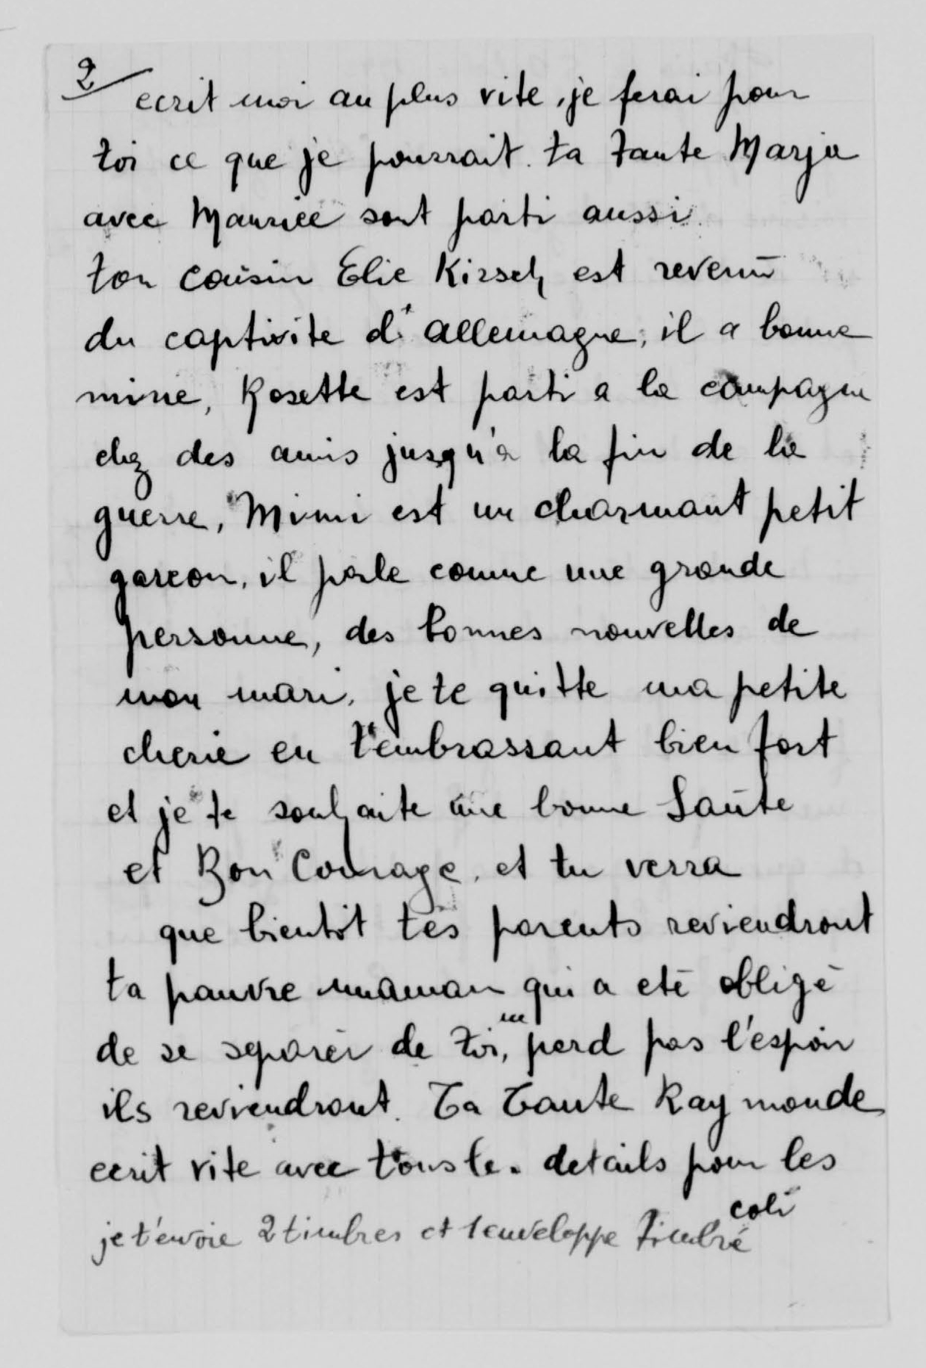 2/
ecrit moi au plus vite, je ferai pour
toi ce que je pourrait. ta tante Marja
avec Maurice sont parti aussi.
ton cousin Elie Kirsch est revenu
du captivite d'allemagne, il a bonne
mine, Rosette est parti a la campagne
chez des amis jusqu'a la fin de la
guerre, Mimi est un charmant petit
garcon, il parle comme une grande
personne, des bonnes nouvelles de
mon mari, je te quitte ma petite
cherie en t'embrassant bien fort
et je te souhaite une bonne Sante
et Bon Courage, et tu verra
que bientot tes parents reviendront
ta pauvre maman qui a eté obligé
de se separer de toi, ne perd pas l'espoir
ils reviendront. Ta Tante Raymonde
ecrit vite avec tous le. details pour les
coli
je t'envoie 2 timbres et 1 enveloppe timbré